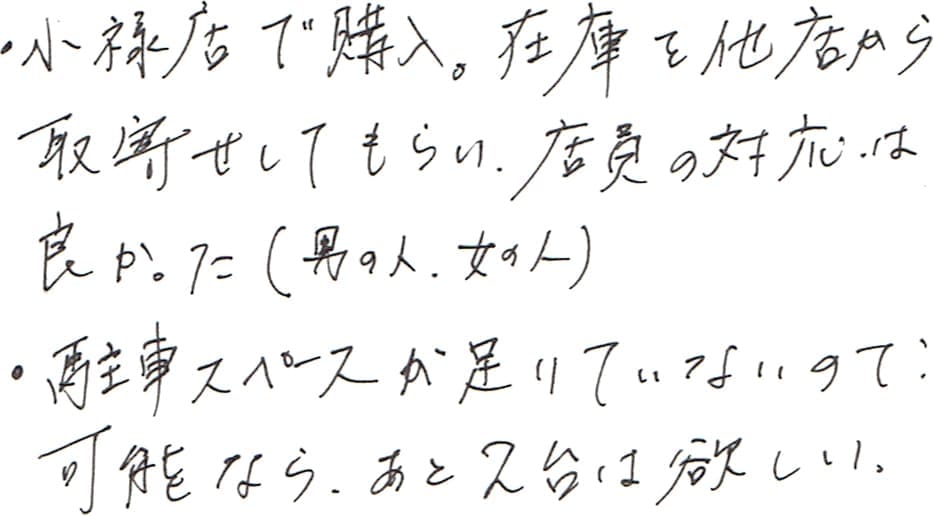 ・小禄店で購入。在庫を他店から
取寄せしてもらい、店員の対応は
良かった(男の人、女の人)
・駐車スペースが足りていないので、
可能なら、あと2台は欲しい。